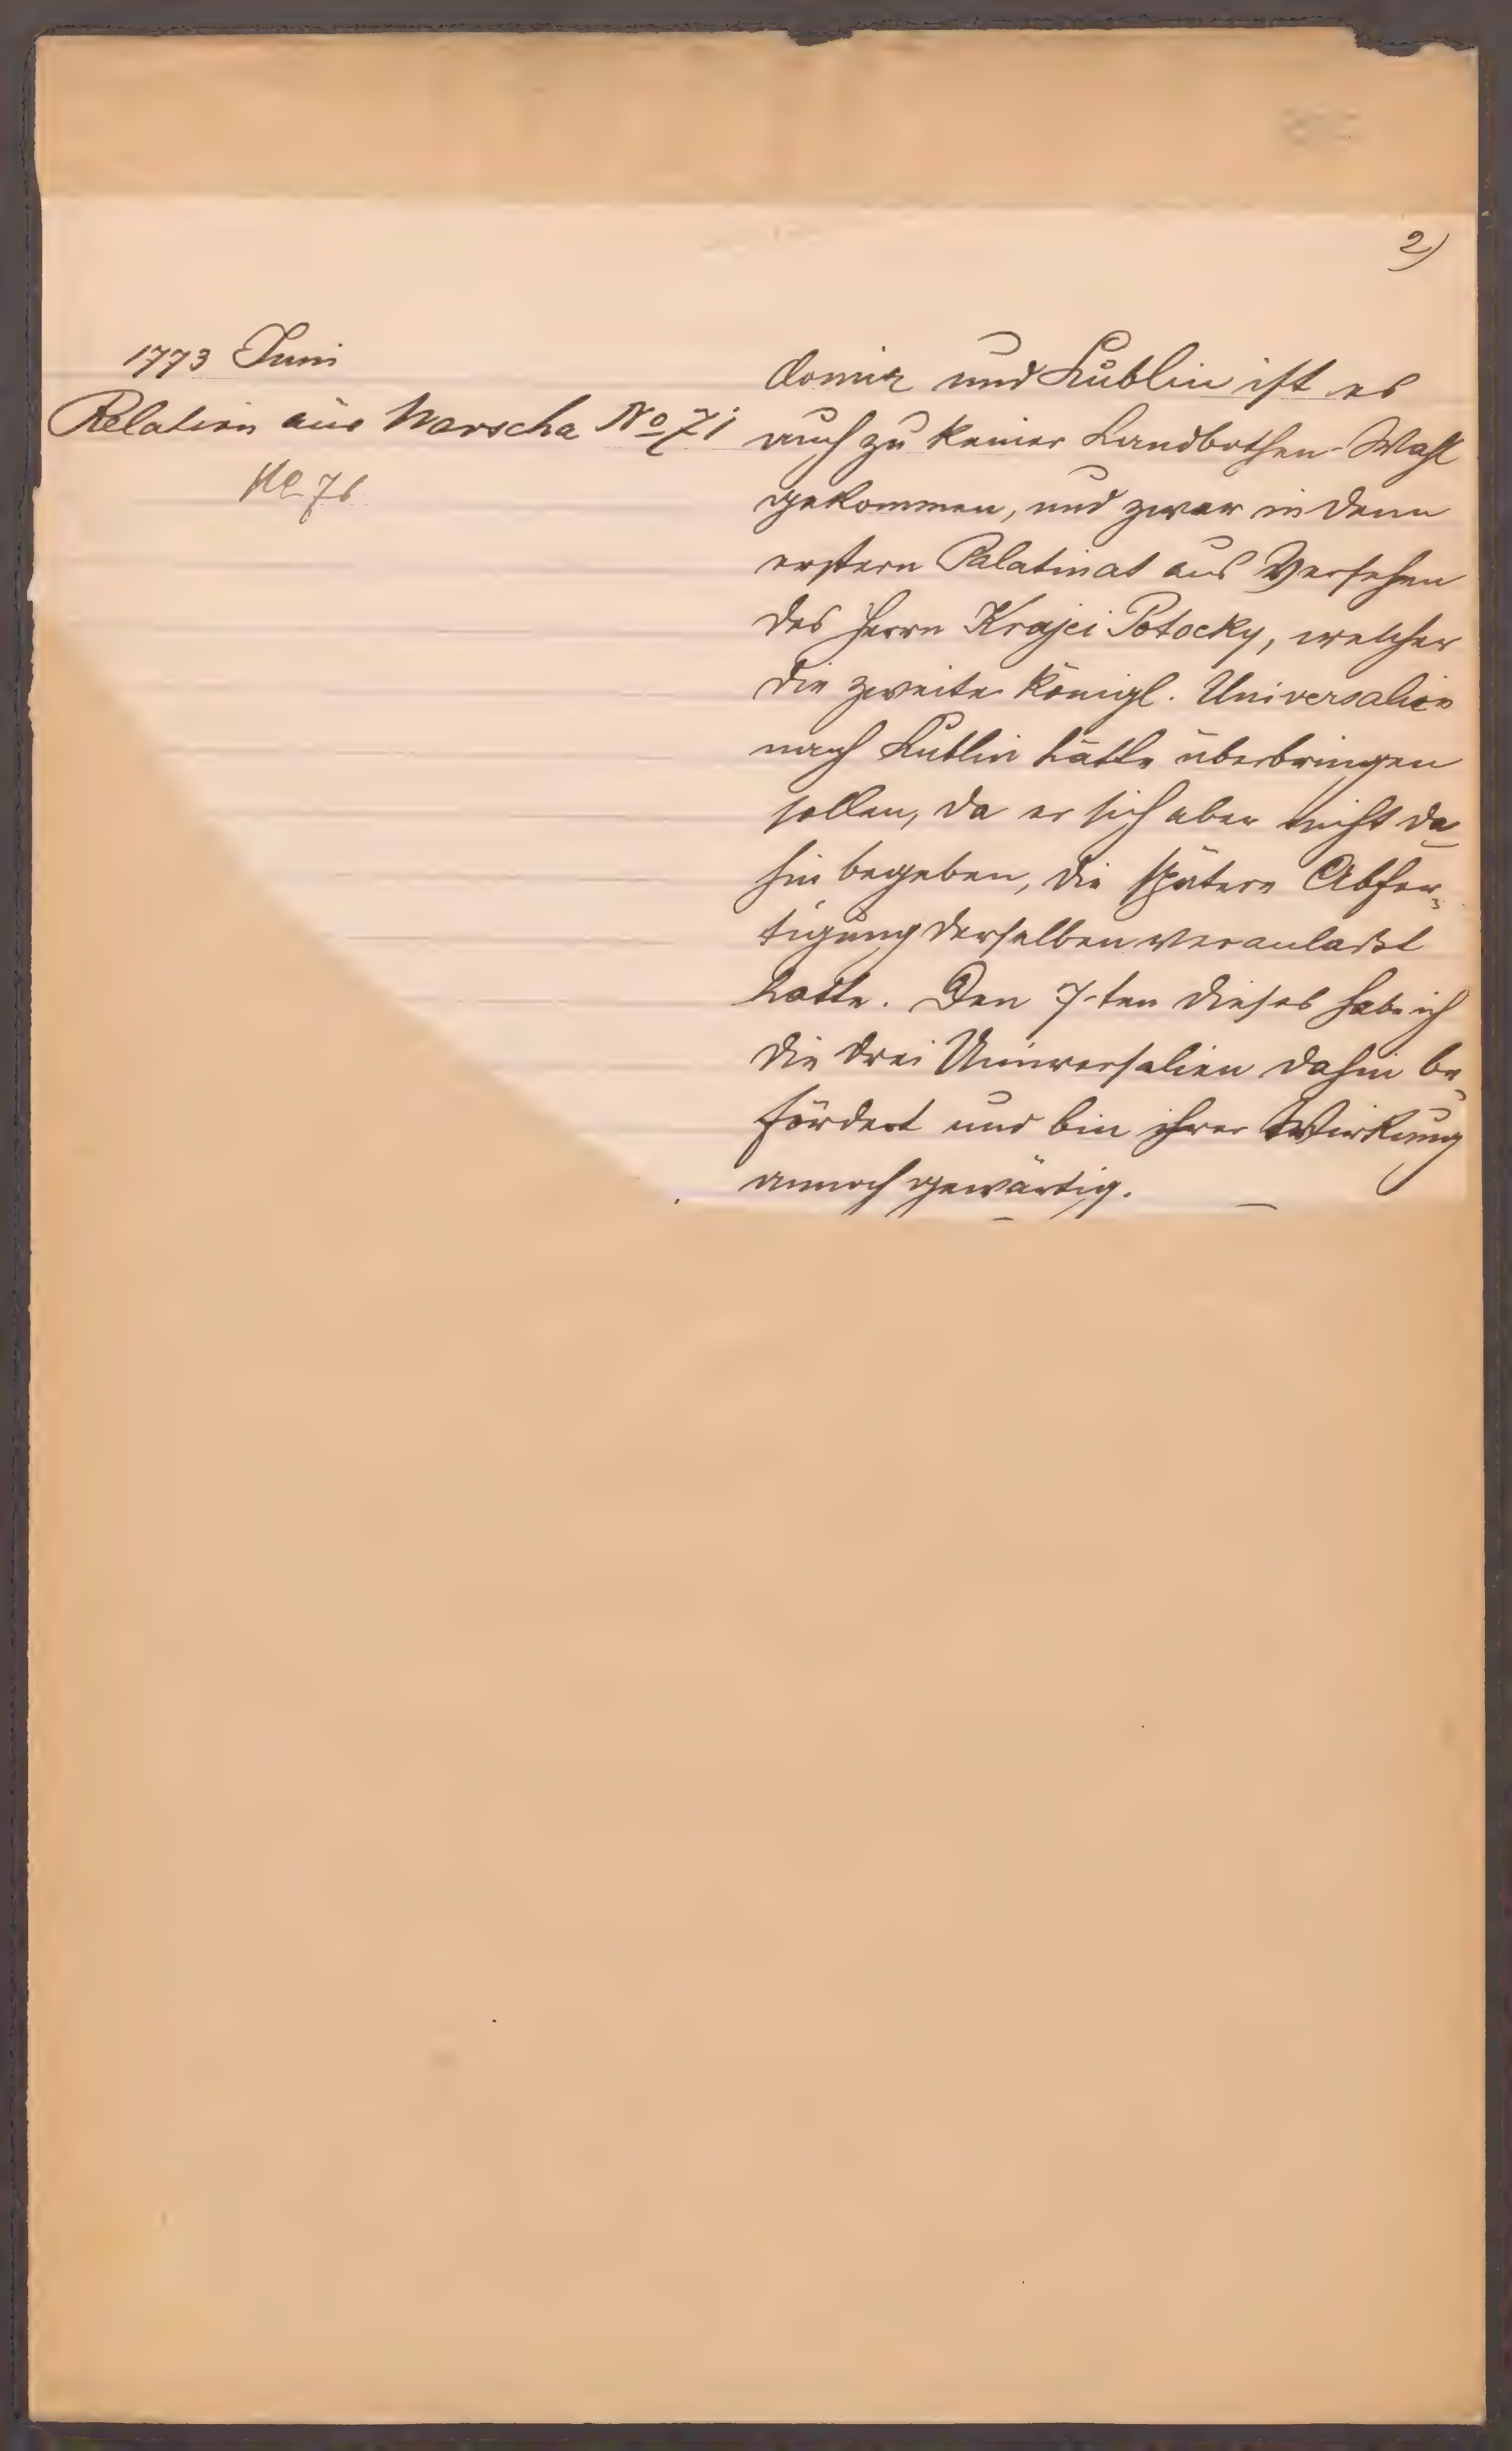 2)
1773 Juni
Relation aus Warscha No 71
No 76
domir und Lublin ist es
auch zu keiner Landbothen-Wahl
gekommen, und zwar in dem
erstern Palatinat aus Versehen
des Herrn Krajci Potocky, welcher
die zweite Königl. Universalien
nach Lublin hätte überbringen
sollen, da er sich aber nicht da
hin begeben, die spätere Abfer-
tigung derselben veranlaßt
hatte. Den 7-ten dieses habe ich
die drei Universalien dahin be-
fördert und bin ihrer Wirkung
annoch gewärtig.